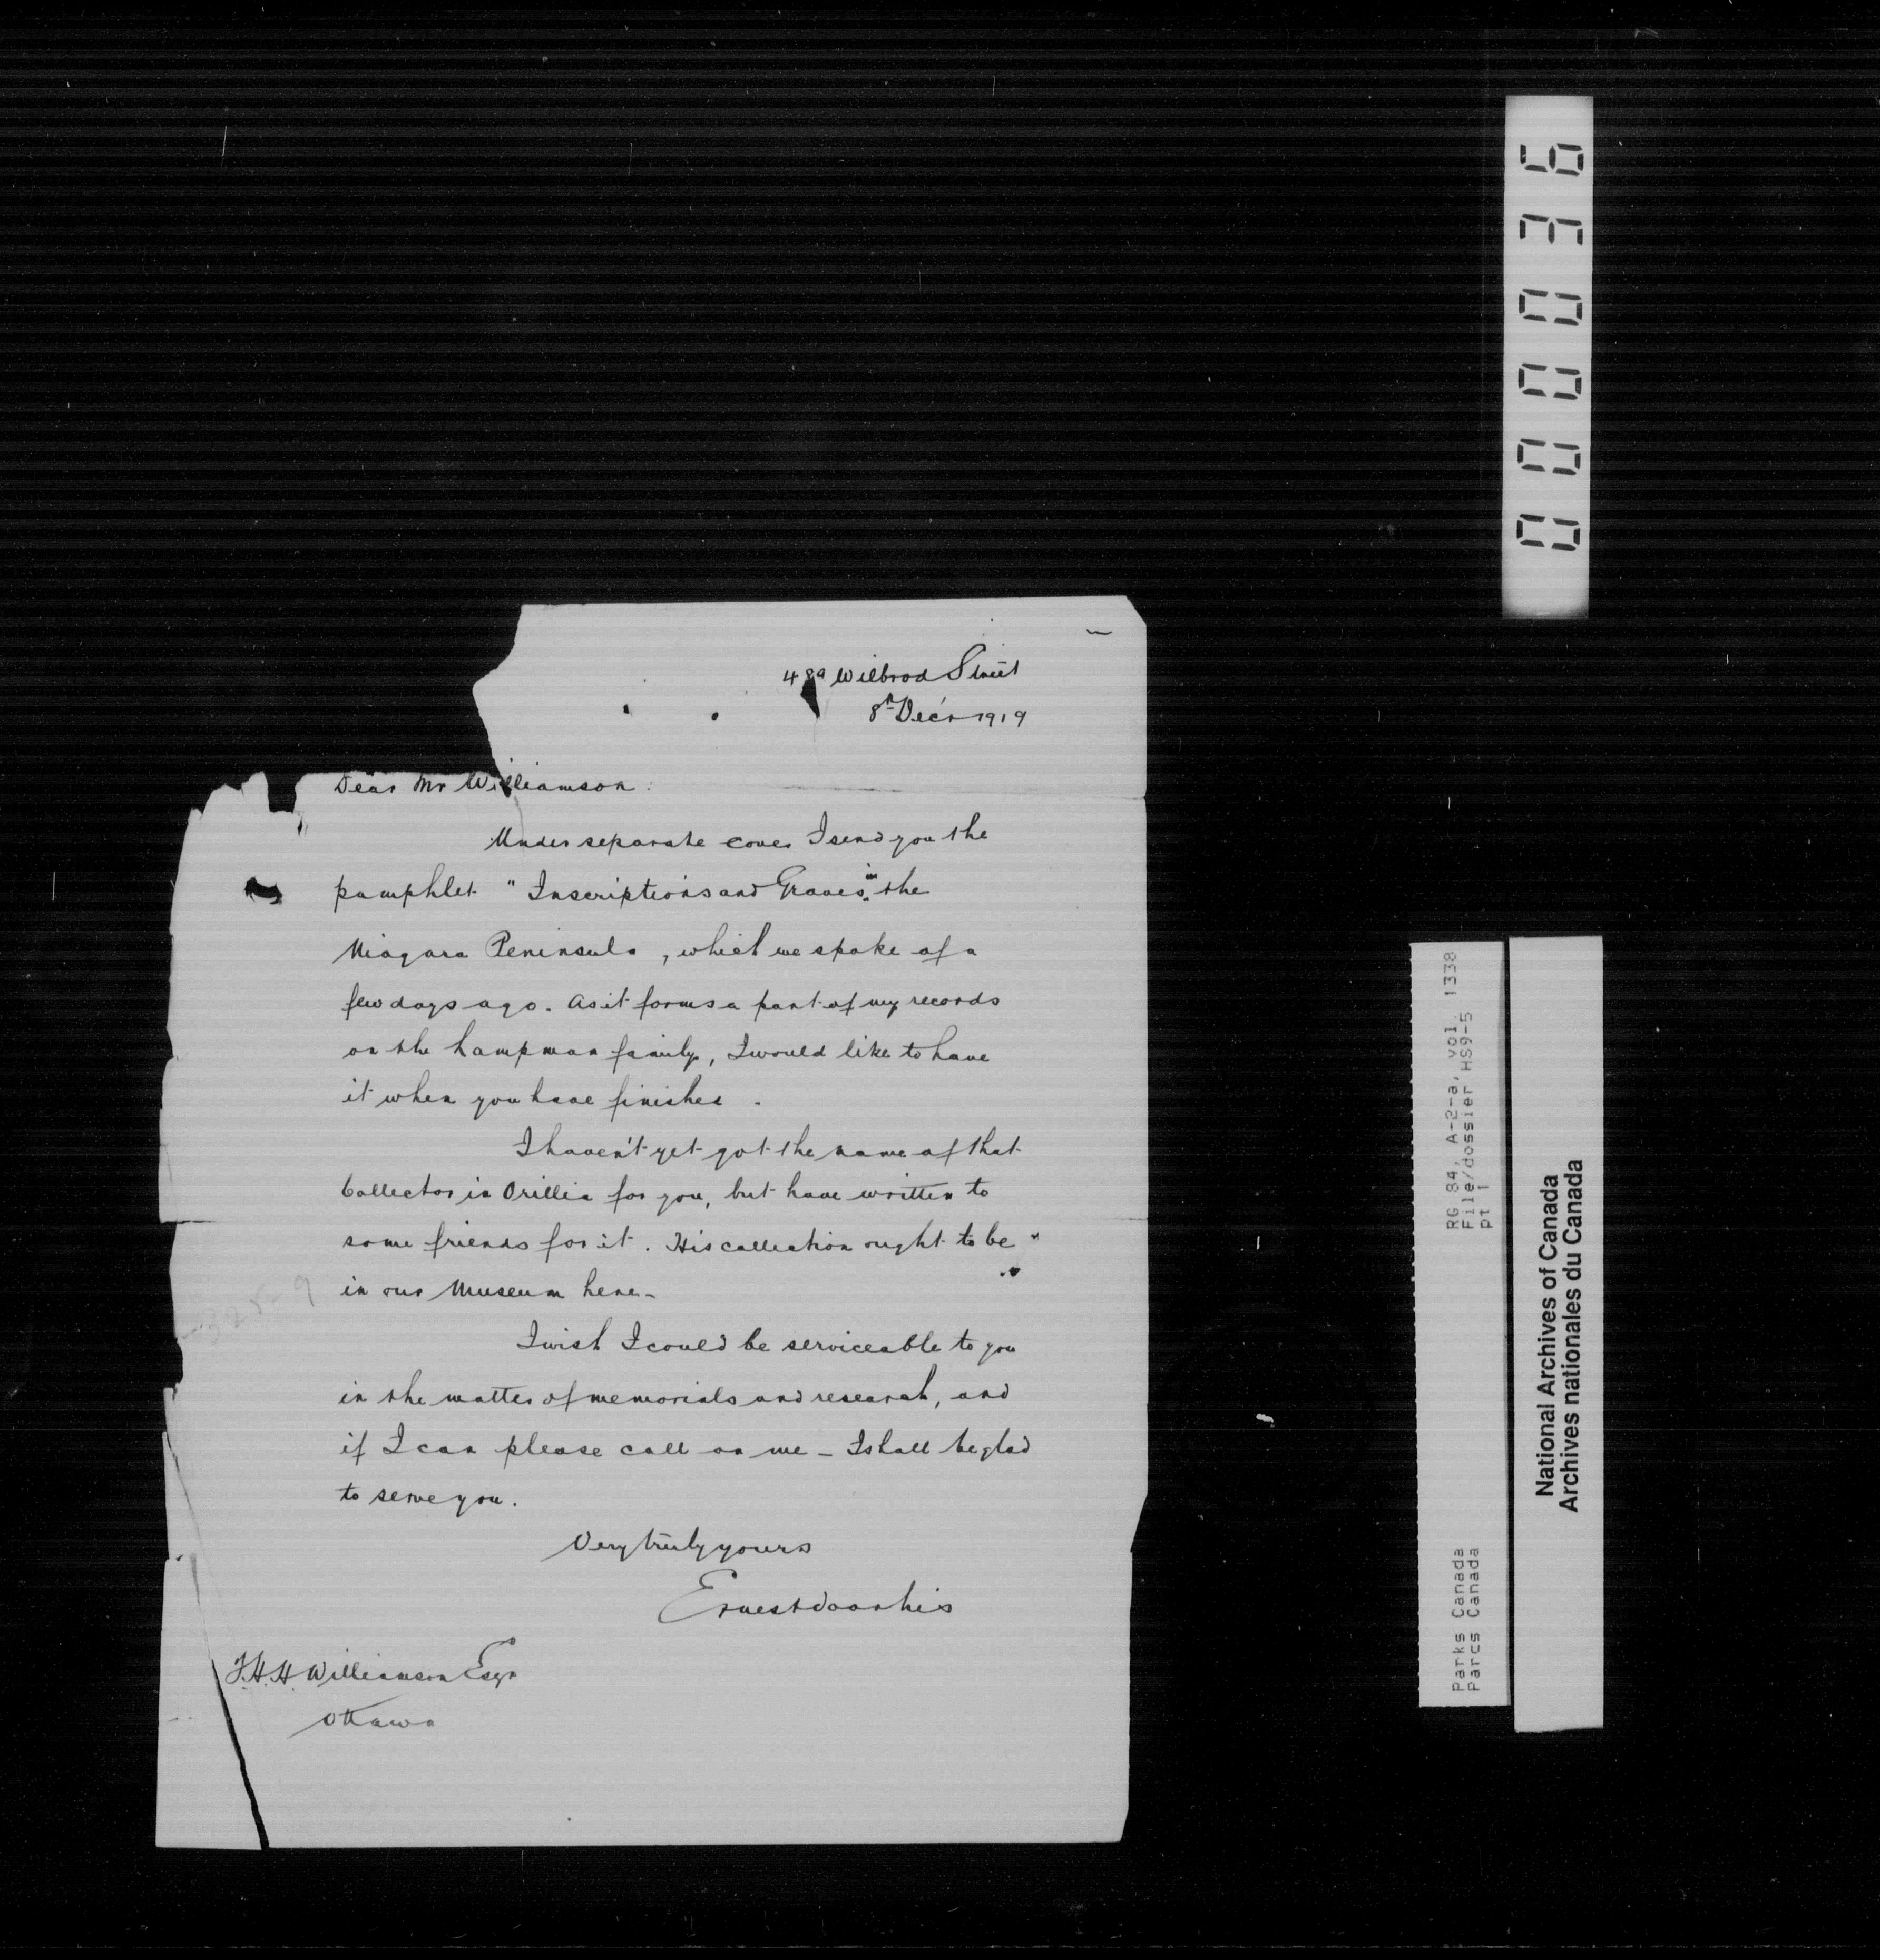 489 Wilbrod Street
8th Dec'r 1919
Dear Mr Williamson.
Under separate cover I send you the
pamphlet "Inscriptions and Graves" in the
Niagara Peninsula, which we spoke of a
few days ago. As it forms a part of my records
on the Lampman family, I would like to have
it when you have finished.
I haven't yet got the name of that
Collector in Orillia for you, but have written to
some friends for it. His collection ought to be
in our Museum here-
I wish I could be serviceable to you
in the matter of memorials and research, and
if I can please call on me - I shall be glad
to serve you.
Very truly yours
Ernest Voorhis
J.H.H. Williamson Esqr
Ottawa
325-9
000036
RG 84, A-2-a, vol. 1338
File/dossier HS9-5
pt 1
Parks Canada
Parcs Canada
National Archives of Canada
Archives nationales du Canada